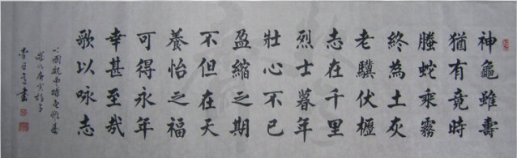 神龜雖壽
猶有竟時
螣蛇乘霧
終為土灰
老驥伏櫪
志在千里
烈士暮年
壯心不已
盈縮之期
不但在天
養怡之福
可得永年
幸甚至哉
歌以咏志